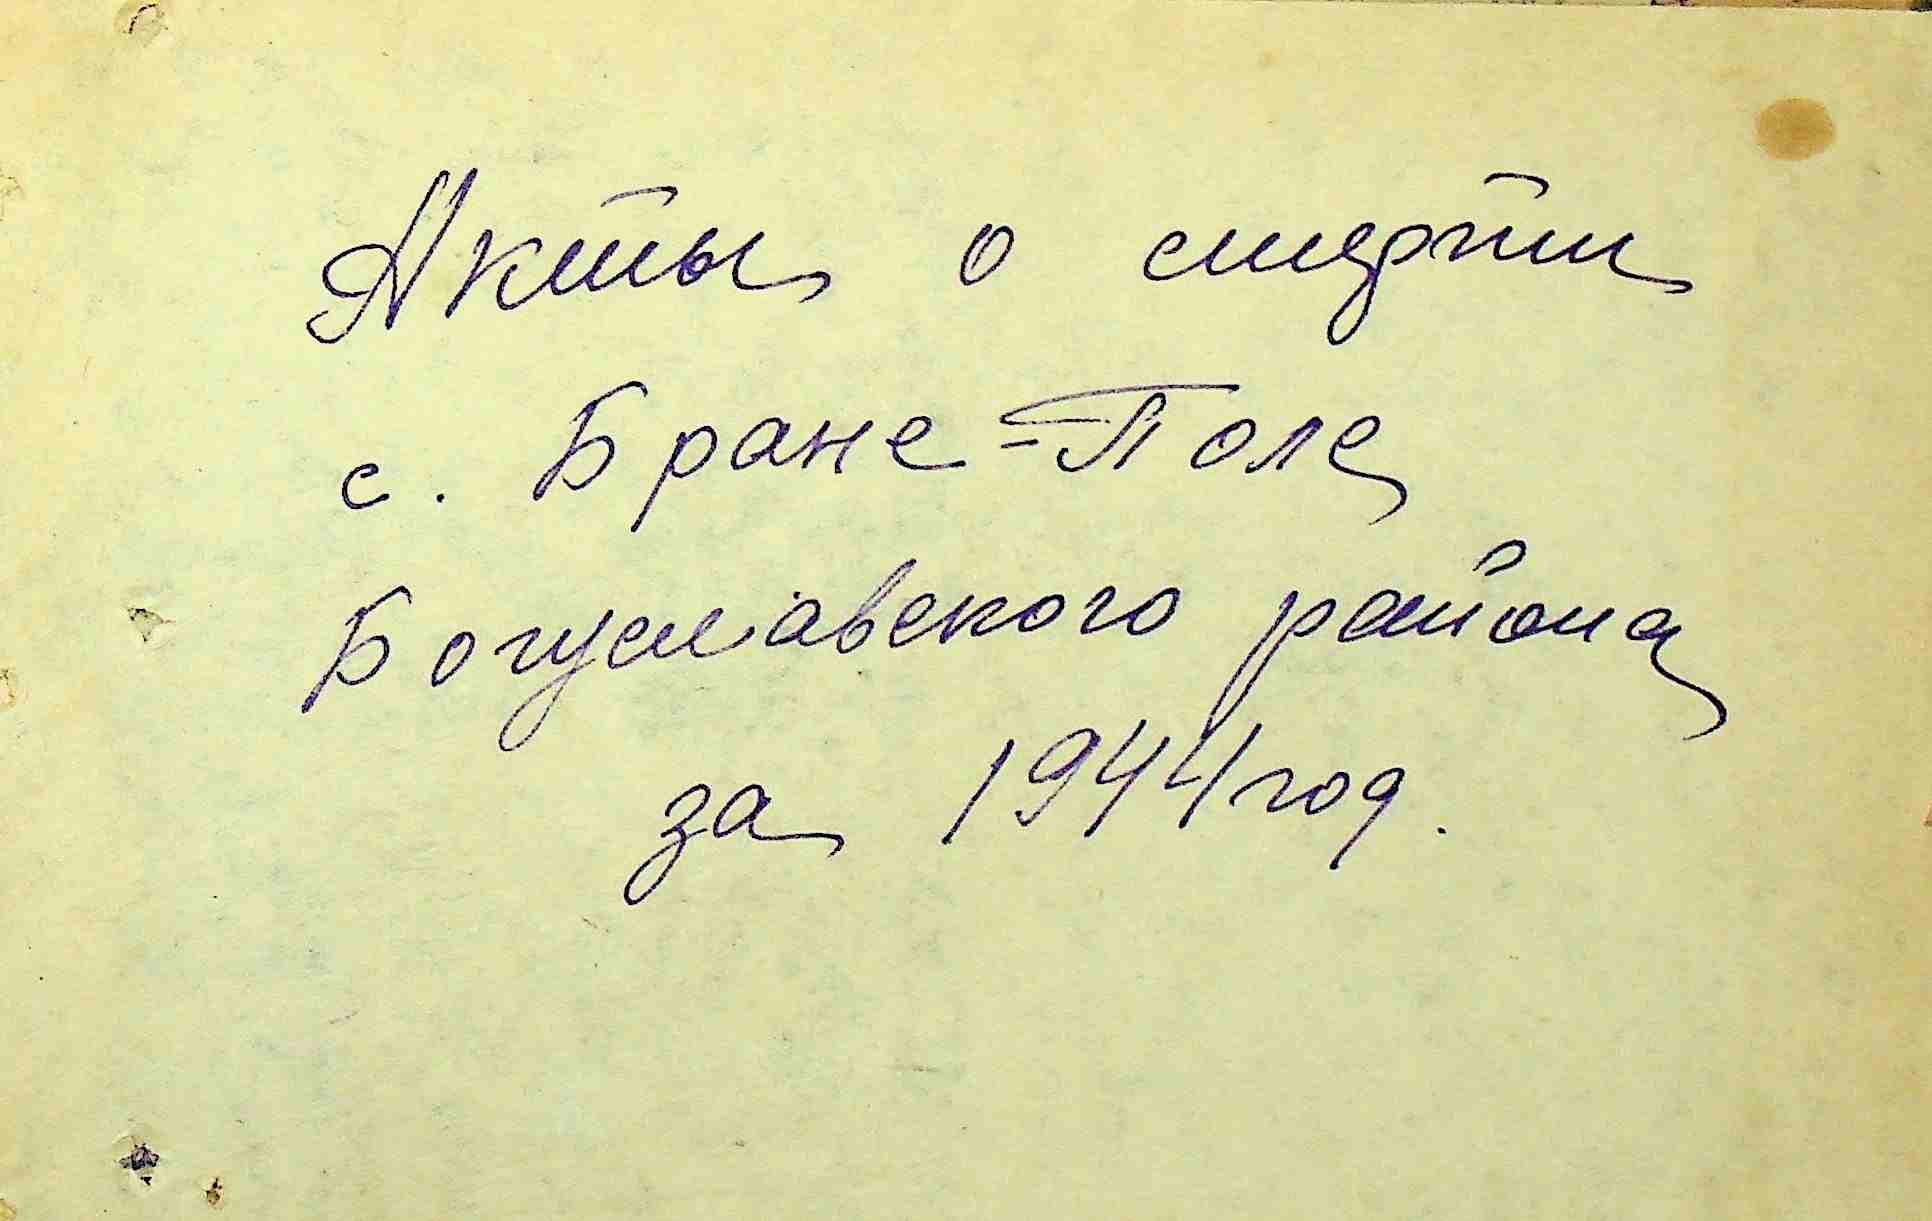 Акты о смерти
с. Бране-Поле
Богуславского района
за 1944 год.